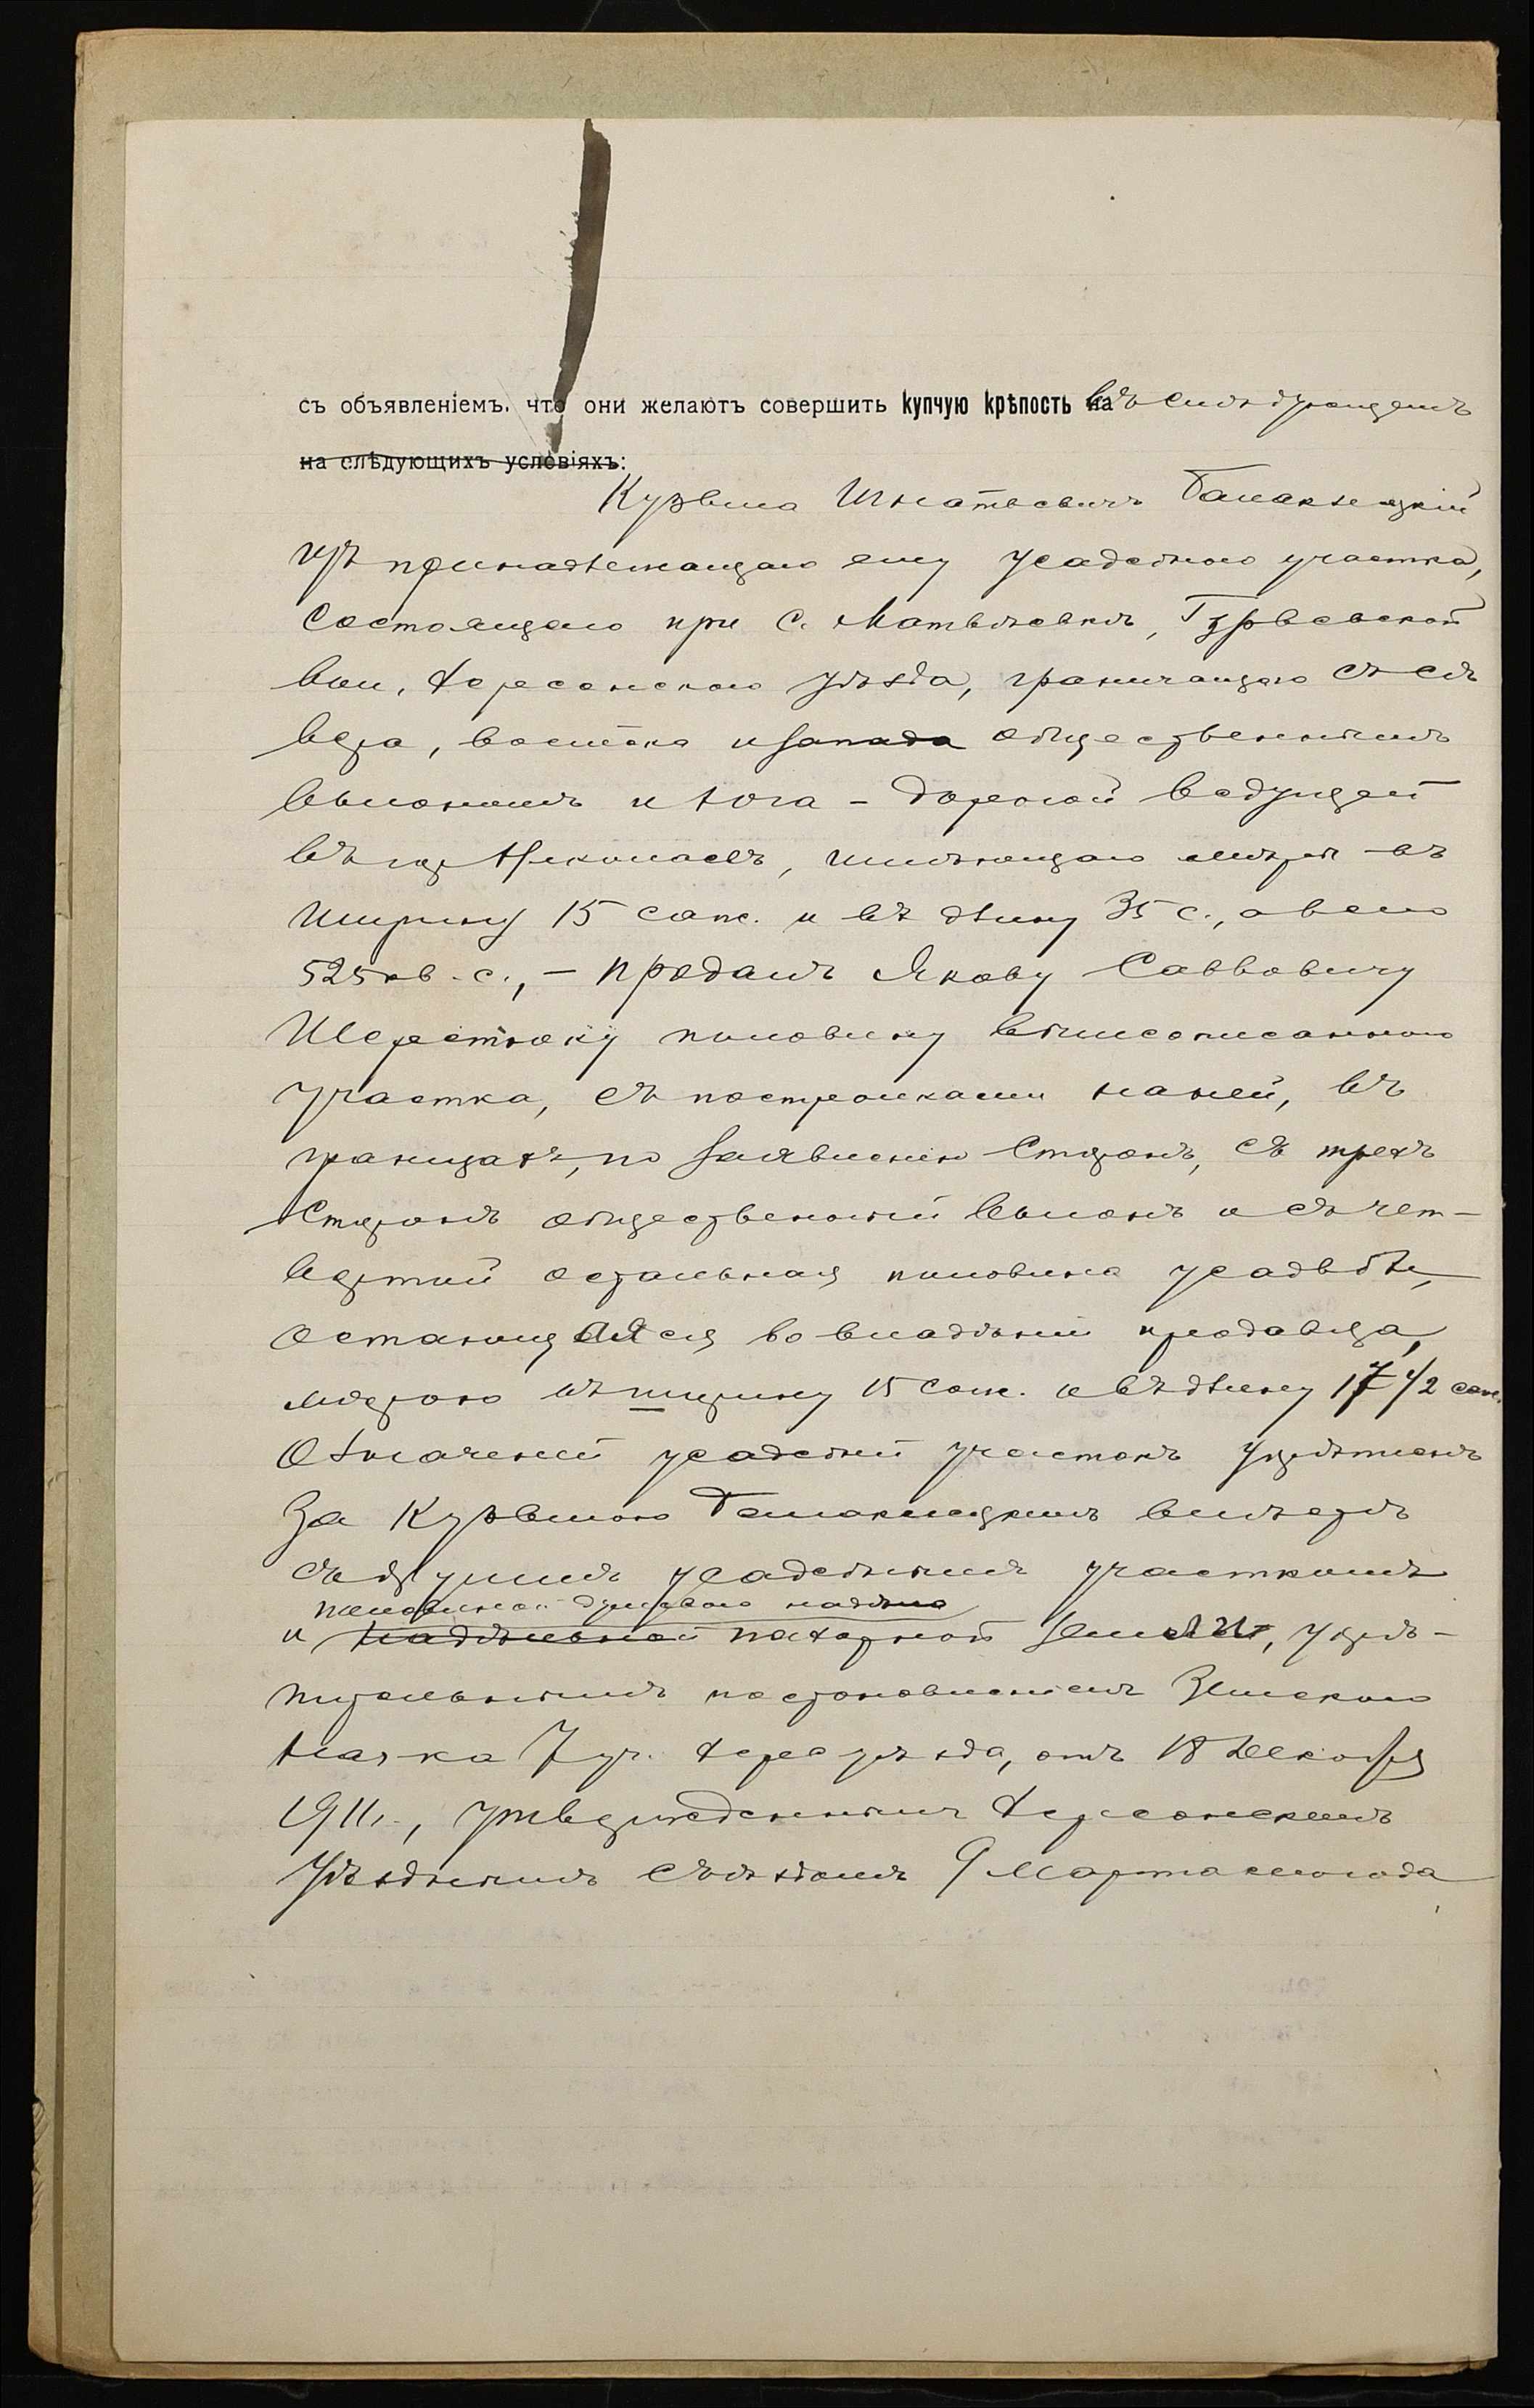 съ объявленіемъ, что они желаютъ совершить купчую крѣпость на въ слѣдующемъ
на слѣдующихъ условіяхъ:
Кузьма Игнатьевичъ
изъ принадлежащаго ему усадебнаго участка,
состоящаго при с. Матвѣевкѣ,
вол., Херсонскаго уѣзда, граничащаго съ сѣ
вера, востока и запада общественнымъ
выгономъ и юга - дорогой ведущей
въ гор. Николаевъ, имѣющаго мѣры въ
ширину 15 саж. и въ длину 35 с., а всего
525 кв. с., - продалъ Якову Саввовичу
Шерстюку половину вышеописаннаго
участка, съ постройками на ней, въ
границахъ, по заявленію сторонъ, съ трехъ
сторонъ общественный выгонъ и съ чет-
вертой остальная половина усадьбы,
остающаяся во владѣніи продавца,
мѣрою въ ширину 15 саж. и въ длину 17 1/2 саж.
Означенный усадебный участокъ укрѣпленъ
за Кузьмою вмѣстѣ
съ другимъ усадебнымъ участкомъ
половиной душевого надѣла
и надѣльной пахотной земли, укрѣ-
пительнымъ постановленіемъ Земскаго
Нач-ка 7 уч. Херс. уѣзда, отъ 18 Декабря
1911 г., утвержденнымъ Херсонскимъ
Уѣзднымъ Съѣздомъ 9 Марта сего года,